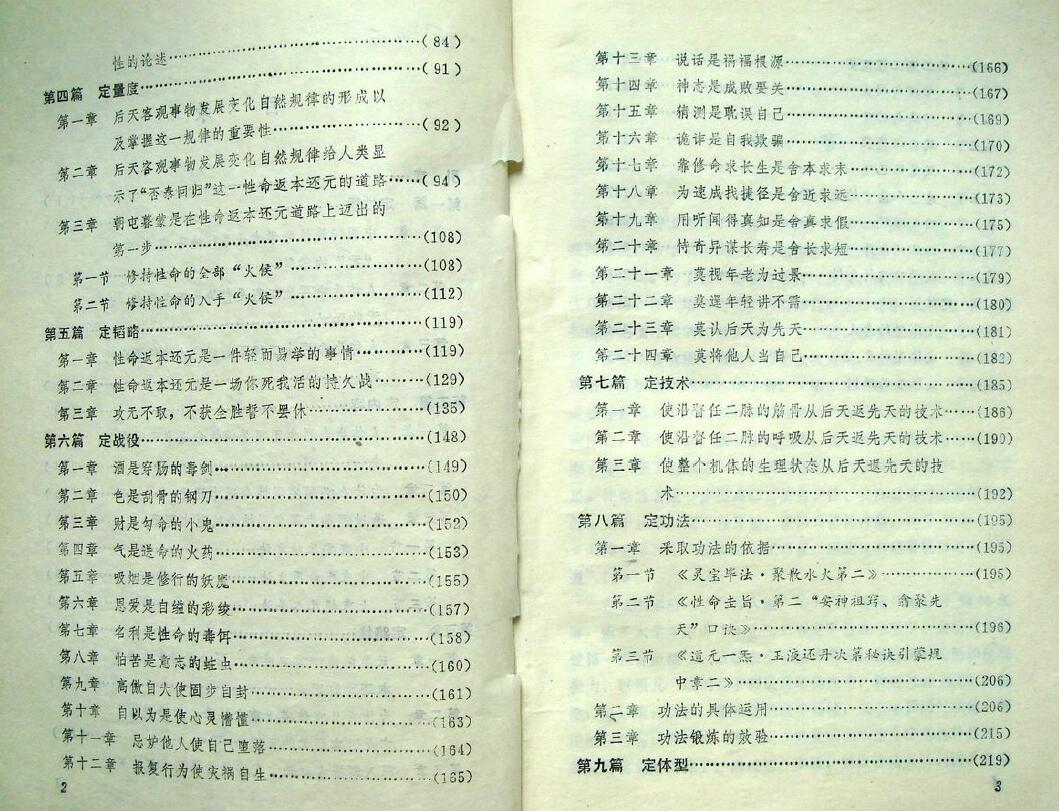 性的论述……(84)
第四篇 定量度……(91)
第一章 后天客观事物发展变化自然规律的形成以
及掌握这一规律的重要性……(92)
第二章 后天客观事物发展变化自然规律给人类显
示了“否泰同归”这一性命返本还元的道路……(94)
第三章 朝屯暮蒙是在性命返本还元道路上迈出的
第一步……(108)
第一节 修持性命的全部“火候”……(108)
第二节 修持性命的入手“火候”……(112)
第五篇 定韬略……(119)
第一章 性命返本还元是一件轻而易举的事情……(119)
第二章 性命返本还元是一场你死我活的持久战……(129)
第三章 攻无不取，不获全胜誓不罢休……(135)
第六篇 定战役……(148)
第一章 酒是穿肠的毒剑……(149)
第二章 色是刮骨的钢刀……(150)
第三章 财是勾命的小鬼……(152)
第四章 气是送命的火药……(153)
第五章 吸烟是修行的妖魔……(155)
第六章 恩爱是自缠的彩绫……(157)
第七章 名利是性命的毒饵……(158)
第八章 怕苦是意志的蛀虫……(160)
第九章 高傲自大使固步自封……(161)
第十章 自以为是使心灵懵懂……(163)
第十一章 忌妒他人使自己堕落……(164)
第十二章 报复行为使灾祸自生……(165)
2
第十三章 说话是祸福根源……(166)
第十四章 神志是成败要关……(167)
第十五章 猜测是耽误自己……(169)
第十六章 诡诈是自我欺骗……(170)
第十七章 靠修命求长生是舍本求末……(172)
第十八章 为速成找捷径是舍近求远……(173)
第十九章 用听闻得真知是舍真求假……(175)
第二十章 恃奇异谋长寿是舍长求短……(177)
第二十一章 莫视年老为过景……(179)
第二十二章 莫逞年轻讲不需……(180)
第二十三章 莫认后天为先天……(181)
第二十四章 莫将他人当自己……(182)
第七篇 定技术……(185)
第一章 使沿督任二脉的筋骨从后天返先天的技术……(186)
第二章 使沿督任二脉的呼吸从后天返先天的技术……(190)
第三章 使整个机体的生理状态从后天返先天的技
术……(192)
第八篇 定功法……(195)
第一章 采取功法的依据……(195)
第一节 《灵宝毕法·聚散水火第二》……(195)
第二节 《性命圭旨·第二“安神祖窍、翕聚先
天”口诀》……(196)
第三节 《道元一炁·玉液还丹次第秘诀引蒙规
中章二》……(206)
第二章 功法的具体运用……(206)
第三章 功法锻炼的效验……(215)
第九篇 定体型……(219)
3